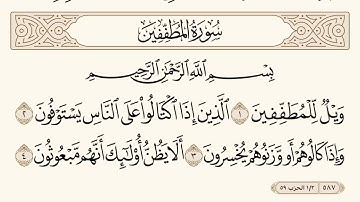 سُورَةُ المُطَفِّفِينَ
بِسْمِ اللَّهِ الرَّحْمَٰنِ الرَّحِيمِ
وَيْلٌ لِّلْمُطَفِّفِينَ ١ الَّذِينَ إِذَا اكْتَالُوا عَلَى النَّاسِ يَسْتَوْفُونَ ٢
وَإِذَا كَالُوهُمْ أَو وَّزَنُوهُمْ يُخْسِرُونَ ٣ أَلَا يَظُنُّ أُولَٰئِكَ أَنَّهُم مَّبْعُوثُونَ ٤
٥٨٧ | ١/٢ الحزب ٥٩